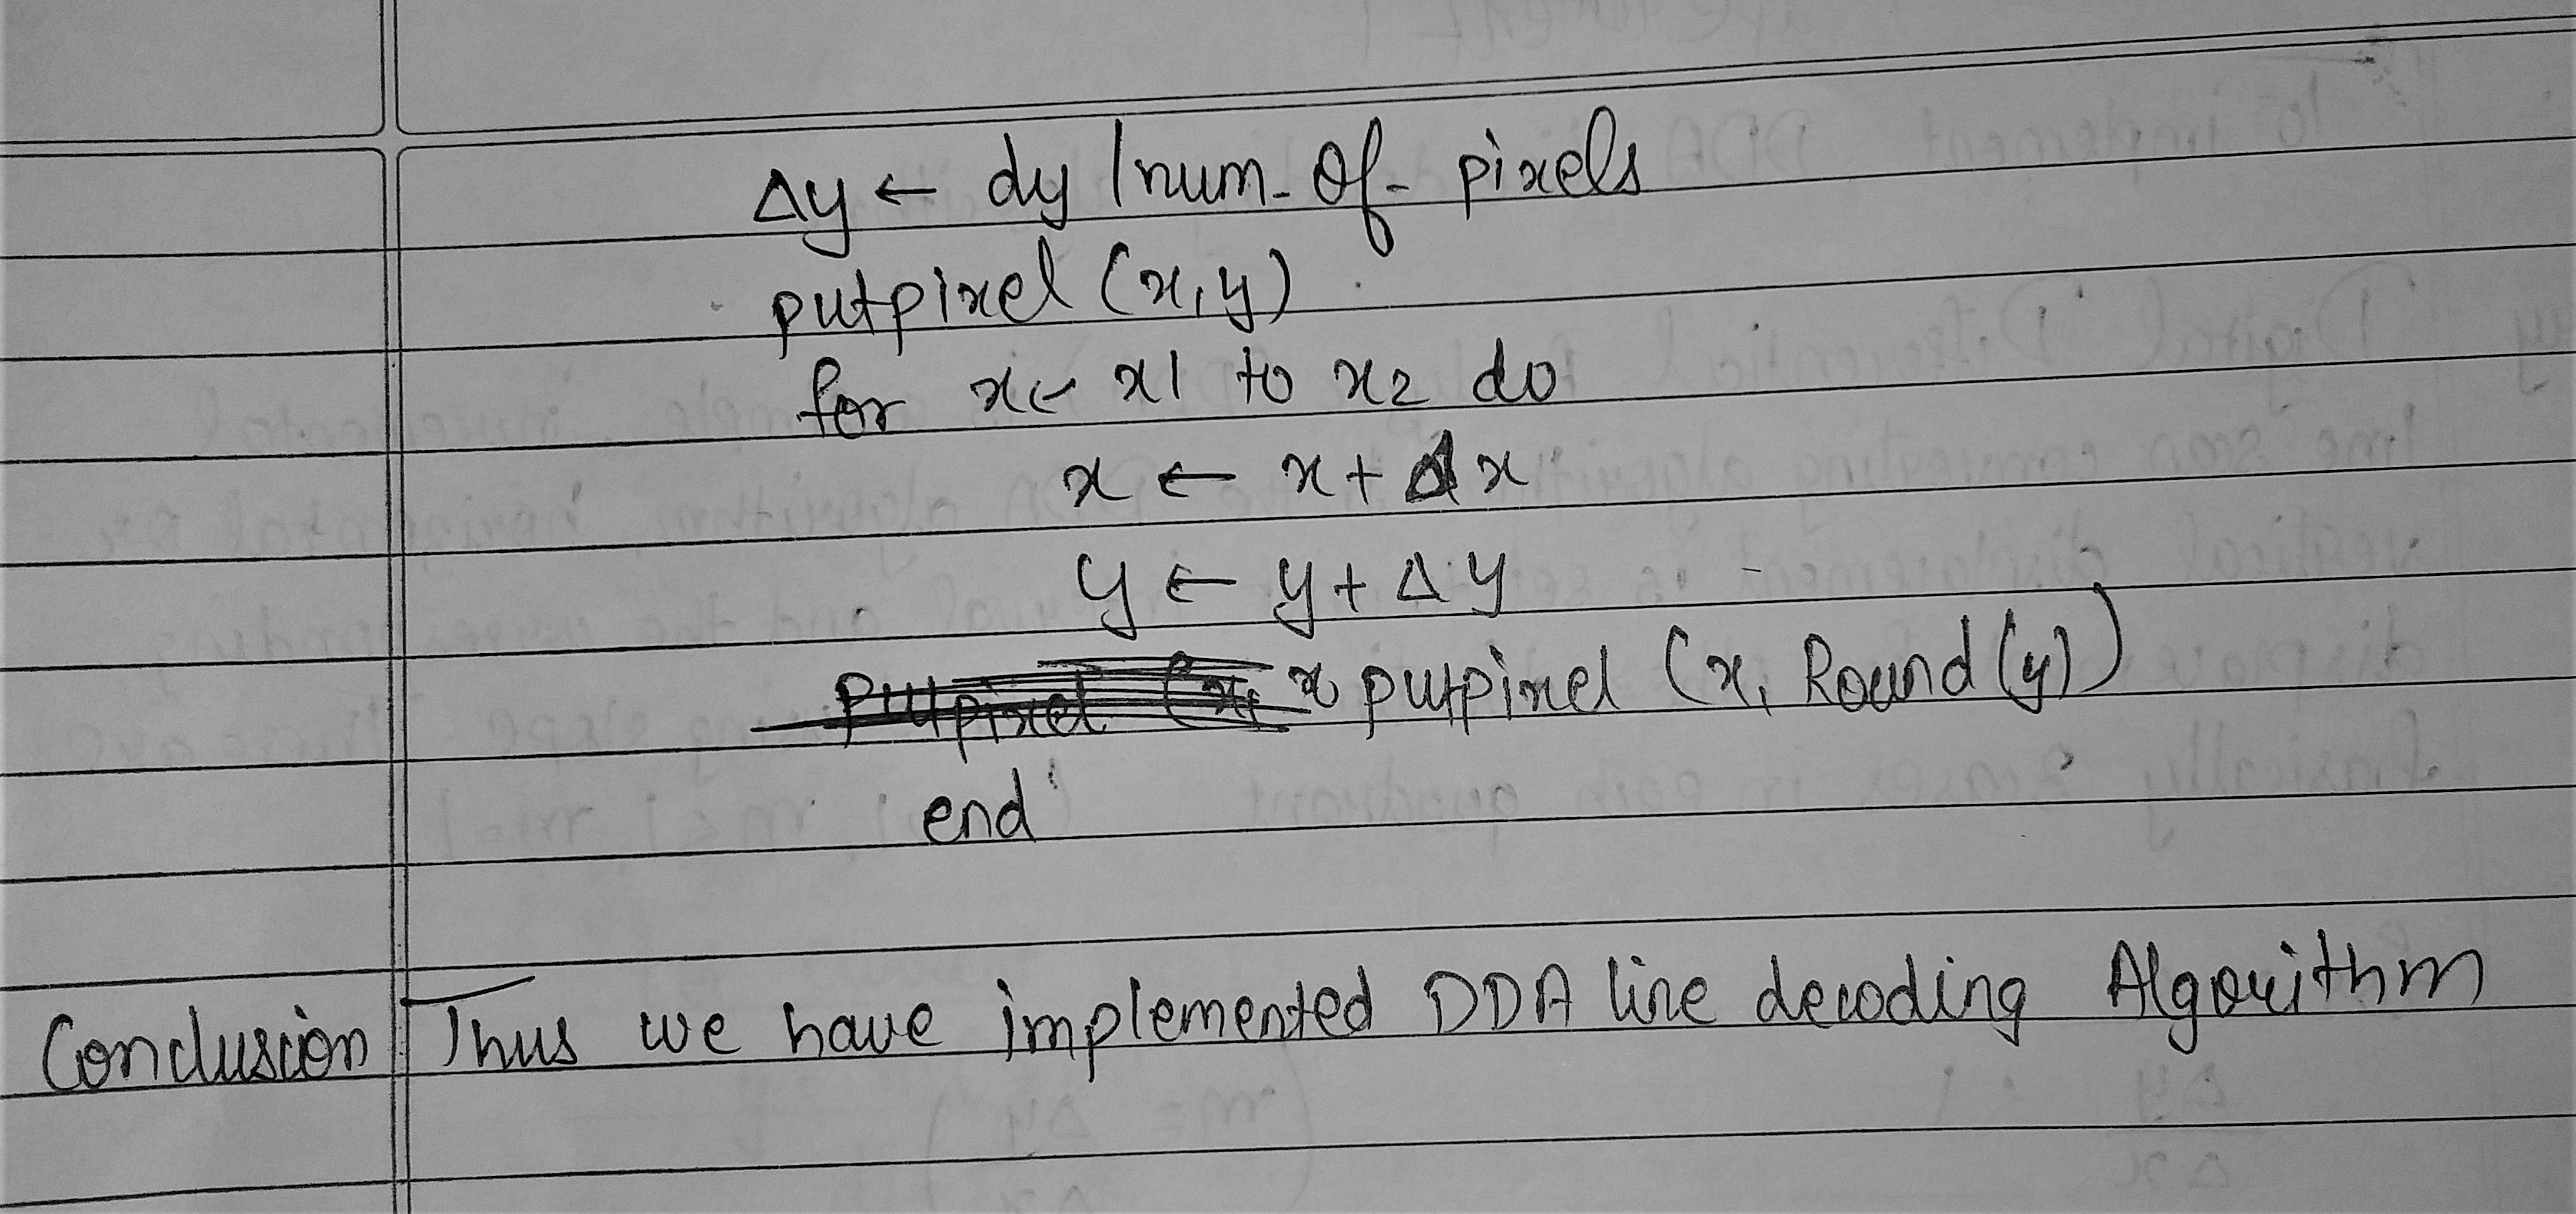 Δy ← dy / num_of_ pixels
putpixel (x, y)
for x ← x1 to x2 do
x ← x + Δx
y ← y + Δy
putpixel (x, Round (y))
end
Conclusion Thus we have implemented DDA line decoding Algorithm